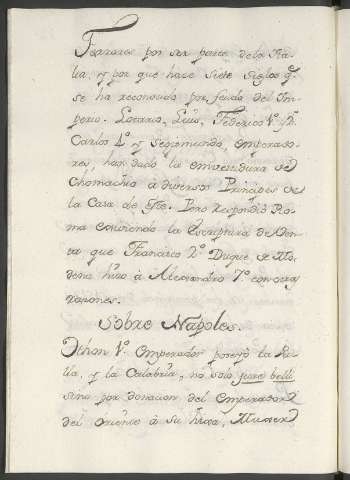 Ferrara por ser parte dela Ita-
lia, y por que hace siete siglos q.
se ha reconocido por feudo del Im-
perio. Lotario, Luis, Federico 1º y 2º
Carlos 4º y Segismundo, emperado-
res, han dado la envestidura de
Chomachio à diversos Principes de
la Casa de Este. Pero respondió Ro-
ma exiviendo la escriptura de Ven-
ta que Francisco 2º Duque de Mo-
dena hizo à Alexandro 7º con otras
razones.
Sobre Napoles.
Othon 1º emperador poseyó la Pu-
lla, y la Calabria, nó solo jure belli
sino por donacion del emperador
del oriente à su hixa, Muxer